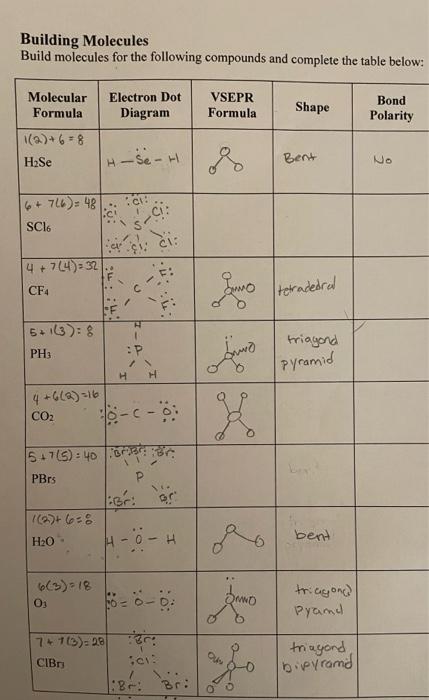 Building Molecules
Build molecules for the following compounds and complete the table below:
Molecular Formula Electron Dot Diagram VSEPR Formula Shape Bond Polarity
1(2)+6=8
H2Se H-Se-H Bent No
6+7(6)=48
SCl6 Cl Cl Cl S Cl Cl Cl
4+7(4)=32
CF4 F F C F F tetradedral
5+1(3)=8
PH3 H P H H triagond pyramid
4+6(2)=16
CO2 O-C-O
5+7(5)=40
PBr5 Br Br Br P Br Br bent
1(2)+6=8
H2O H-O-H bent
6(3)=18
O3 O=O-O triagonal pyramd
7+7(3)=28
ClBr3 Br Cl Br Br triagond bipyramd